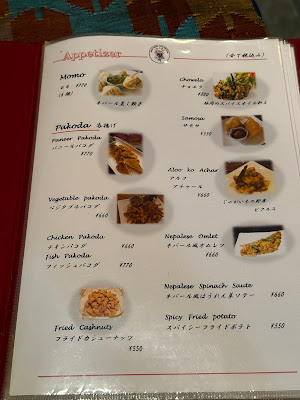 Appetizer
(全て税込み)
Momo
モモ ¥770
(6個)
ネパール蒸し餃子
Pakoda 各揚げ
Paneer Pakoda
パニールパコダ
¥770
Vegetable pakoda
ベジタブルパコダ
¥660
Chicken Pakoda
チキンパコダ ¥660
Fish Pakoda
フィッシュパコダ ¥770
Fried Cashnuts
フライドカシューナッツ
¥550
Chowela
チョエラ
¥880
Samosa
サモサ
¥550
Aloo ko Achar
アルコ
アチャール
¥660
じゃがいもの野菜
ピクルス
Nepalese Omlet
ネパール風オムレツ
¥660
Nepalese Spinach Saute
ネパール風ほうれん草ソテー ¥660
Spicy Fried potato
スパイシーフライドポテト ¥550